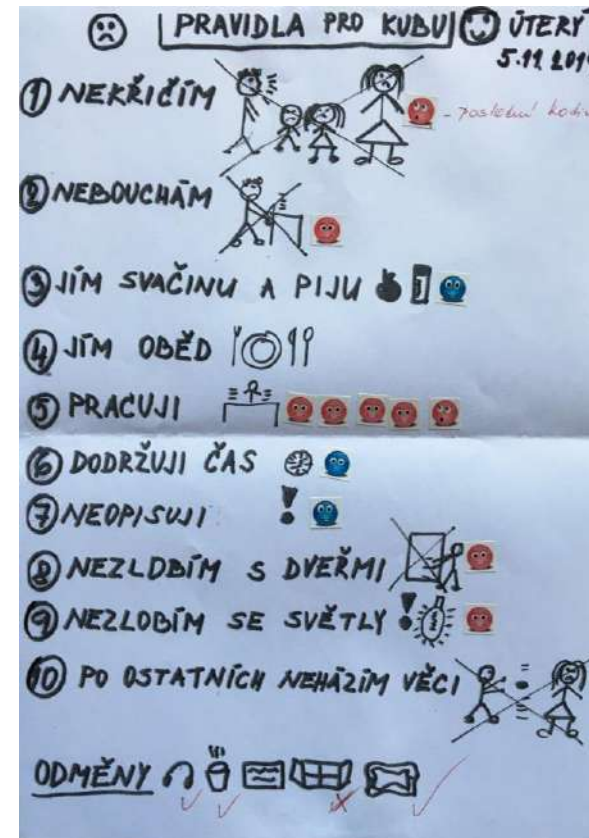 PRAVIDLA PRO KUBU ÚTERÝ
5.11.201
① NEKŘIČÍM
- poslední hodin
② NEBOUCHÁM
③ JÍM SVAČINU A PIJU
④ JÍM OBĚD
⑤ PRACUJI
⑥ DODRŽUJI ČAS
⑦ NEOPISUJI
⑧ NEZLOBÍM S DVEŘMI
⑨ NEZLOBÍM SE SVĚTLY
⑩ PO OSTATNÍCH NEHÁZÍM VĚCI
ODMĚNY